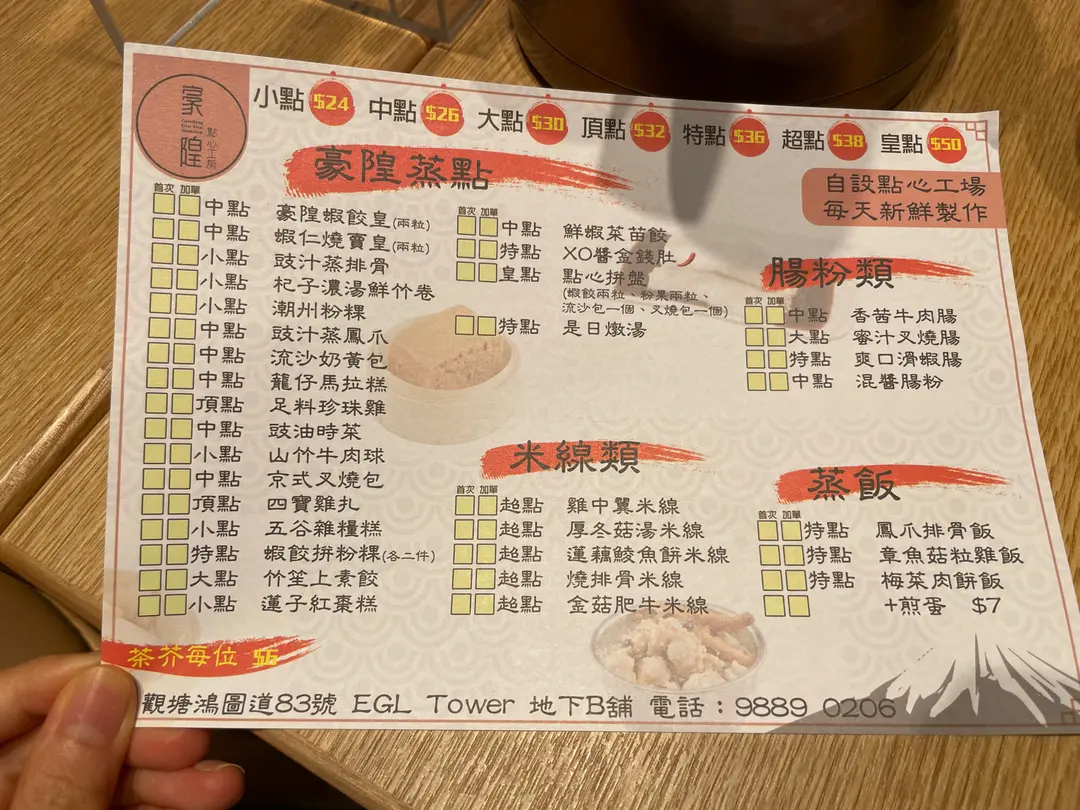 豪隍
點心工房
小點 $24 中點 $26 大點 $30 頂點 $32 特點 $36 超點 $38 皇點 $50
自設點心工場
每天新鮮製作
豪隍蒸點
首次 加單
中點 豪隍蝦餃皇(兩粒)
中點 蝦仁燒賣皇(兩粒)
小點 豉汁蒸排骨
小點 杞子濃湯鮮竹卷
小點 潮州粉粿
中點 豉汁蒸鳳爪
中點 流沙奶黃包
中點 籠仔馬拉糕
頂點 足料珍珠雞
中點 豉油時菜
小點 山竹牛肉球
中點 京式叉燒包
頂點 四寶雞扎
小點 五谷雜糧糕
特點 蝦餃拼粉粿(各二件)
大點 竹笙上素餃
小點 蓮子紅棗糕
首次 加單
中點 鮮蝦菜苗餃
特點 XO醬金錢肚
皇點 點心拼盤
(蝦餃兩粒、粉果兩粒、
流沙包一個、叉燒包一個)
特點 是日燉湯
腸粉類
首次 加單
中點 香茜牛肉腸
大點 蜜汁叉燒腸
特點 爽口滑蝦腸
中點 混醬腸粉
米線類
首次 加單
超點 雞中翼米線
超點 厚冬菇湯米線
超點 蓮藕鯪魚餅米線
超點 燒排骨米線
超點 金菇肥牛米線
蒸飯
首次 加單
特點 鳳爪排骨飯
特點 章魚菇粒雞飯
特點 梅菜肉餅飯
+煎蛋 $7
茶芥每位 $6
觀塘鴻圖道83號 EGL Tower 地下B舖 電話：9889 0206